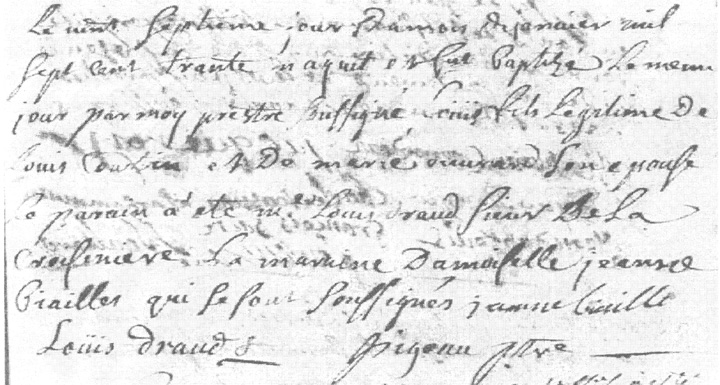 Le vint septieme jour du mois de janvier mil
sept cent trante naquit et fut baptizé le meme
jour par moy prestre soussigné Louis fils legitime de
Louis et de marie son epouse
le parain a été mr Louis draud sieur de La
la maraine Damoiselle jeanne
biailles qui se sont soussignés janne biaille
Loüis draud Pigeau ptre